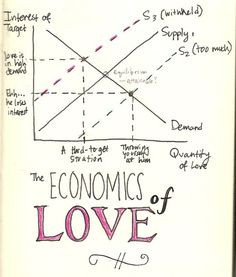 Interest of
Target
S₃ (withheld)
Supply₁
S₂ (too much)
love is
in high
demand
equilibrium
attainable?
Ehh...
he loses
interest
Demand
A Hard-to-get
Stration
Throwing
yourself
at him
Quantity
of Love
The ECONOMICS of
LOVE